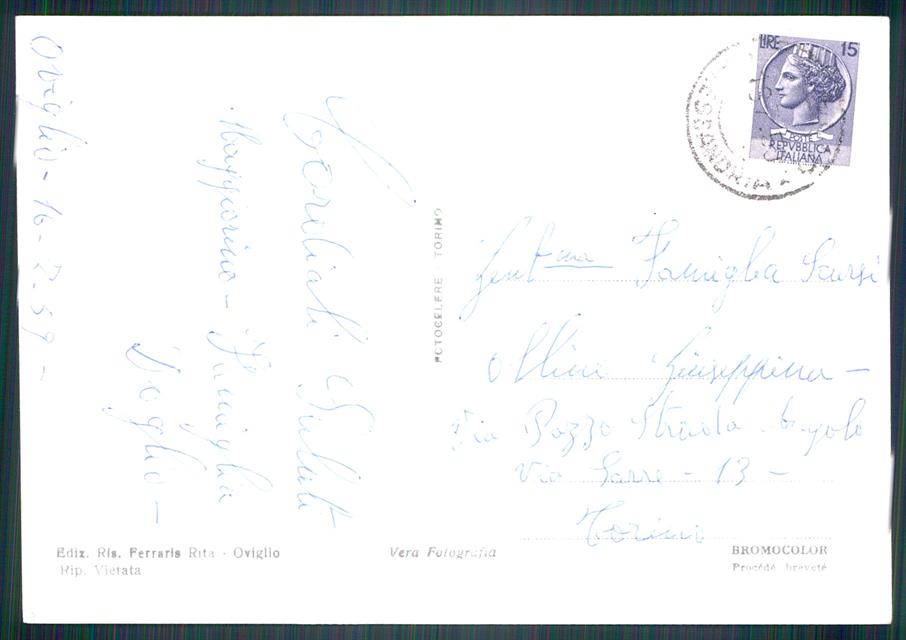 Oviglio - 16-
Cordiali Saluti
Maggiorino - Famiglia
Foglio -
LIRE 15
POSTE
REPVBBLICA
ITALIANA
ALESSANDRIA
FOTOCELERE TORINO
Gent.ma Famiglia
Giuseppina -
Via Pozzo Strada Angolo
Via - 13 -
Torino
Ediz. Ris. Ferraris Rita - Oviglio
Rip. Vietata
Vera Fotografia
BROMOCOLOR
Procédé breveté